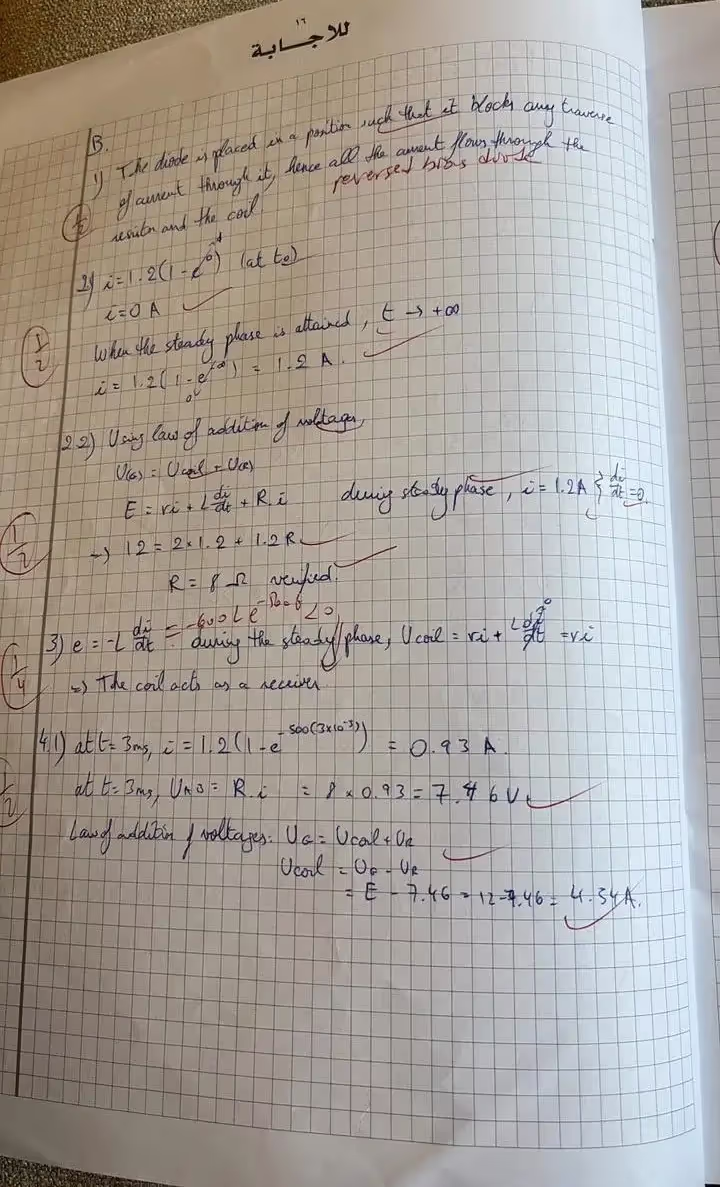 ١٦
للاجابة
B.
1) The diode is placed in a position such that it blocks any traverse
of current through it, hence all the current flows through the
reversed bias diode
resistor and the coil
1/2
2) i = 1.2(1 - e^0) (at t0)
i = 0 A
When the steady phase is attained, t → +∞
1/2
i = 1.2(1 - e^-∞) = 1.2 A.
0
2.2) Using law of addition of voltages,
U(G) = Ucoil + U(R)
E = ri + L di/dt + R.i during steady phase, i = 1.2A } di/dt = 0.
1/2
=> 12 = 2×1.2 + 1.2R
R = 8 Ω verified.
3) e = -L di/dt = -600 L e < 0 during the steady phase, Ucoil = ri + L di/dt 0 = ri
1/4
=> The coil acts as a receiver
4.1) at t = 3ms, i = 1.2(1 - e^-500(3×10^-3)) = 0.93 A.
at t = 3ms, UAB = R.i = 8 × 0.93 = 7.46 V
1/2
Law of addition of voltages: UG = Ucoil + UR
Ucoil = UG - UR
= E - 7.46 = 12 - 7.46 = 4.54 A.